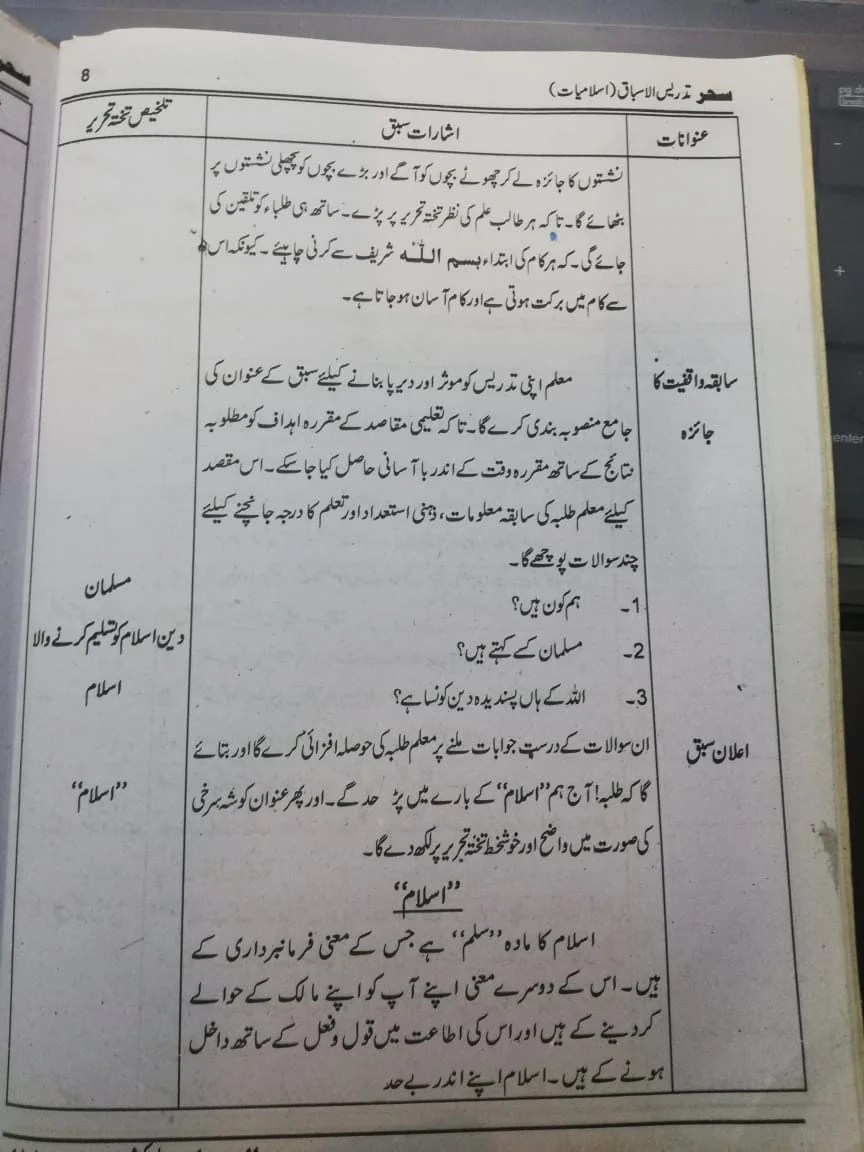 سحر تدریس الاسباق (اسلامیات)
8
عنوانات
اشارات سبق
تلخیص تختۂ تحریر
نشستوں کا جائزہ لے کر چھوٹے بچوں کو آگے اور بڑے بچوں کو پچھلی نشستوں پر
بٹھائے گا۔ تا کہ ہر طالب علم کی نظر تختۂ تحریر پر پڑے۔ ساتھ ہی طلباء کو تلقین کی
جائے گی۔ کہ ہر کام کی ابتداء بسم اللہ شریف سے کرنی چاہیئے۔ کیونکہ اس
سے کام میں برکت ہوتی ہے اور کام آسان ہو جاتا ہے۔
سابقہ واقفیت کا
جائزہ
معلم اپنی تدریس کو موثر اور دیرپا بنانے کیلئے سبق کے عنوان کی
جامع منصوبہ بندی کرے گا۔ تا کہ تعلیمی مقاصد کے مقررہ اہداف کو مطلوبہ
نتائج کے ساتھ مقررہ وقت کے اندر با آسانی حاصل کیا جا سکے۔ اس مقصد
کیلئے معلم طلبہ کی سابقہ معلومات، ذہنی استعداد اور تعلم کا درجہ جانچنے کیلئے
چند سوالات پوچھے گا۔
1۔ ہم کون ہیں؟
2۔ مسلمان کسے کہتے ہیں؟
3۔ اللہ کے ہاں پسندیدہ دین کونسا ہے؟
مسلمان
دین اسلام کو تسلیم کرنے والا
اسلام
اعلان سبق
ان سوالات کے درست جوابات ملنے پر معلم طلبہ کی حوصلہ افزائی کرے گا اور بتائے
گا کہ طلبہ! آج ہم ”اسلام“ کے بارے میں پڑ حد گے۔ اور پھر عنوان کو شہ سرخی
کی صورت میں واضح اور خوشخط تختۂ تحریر پر لکھ دے گا۔
”اسلام“
”اسلام“
اسلام کا مادہ ”سلم“ ہے جس کے معنی فرمانبرداری کے
ہیں۔ اس کے دوسرے معنی اپنے آپ کو اپنے مالک کے حوالے
کر دینے کے ہیں اور اس کی اطاعت میں قول و فعل کے ساتھ داخل
ہونے کے ہیں۔ اسلام اپنے اندر بے حد